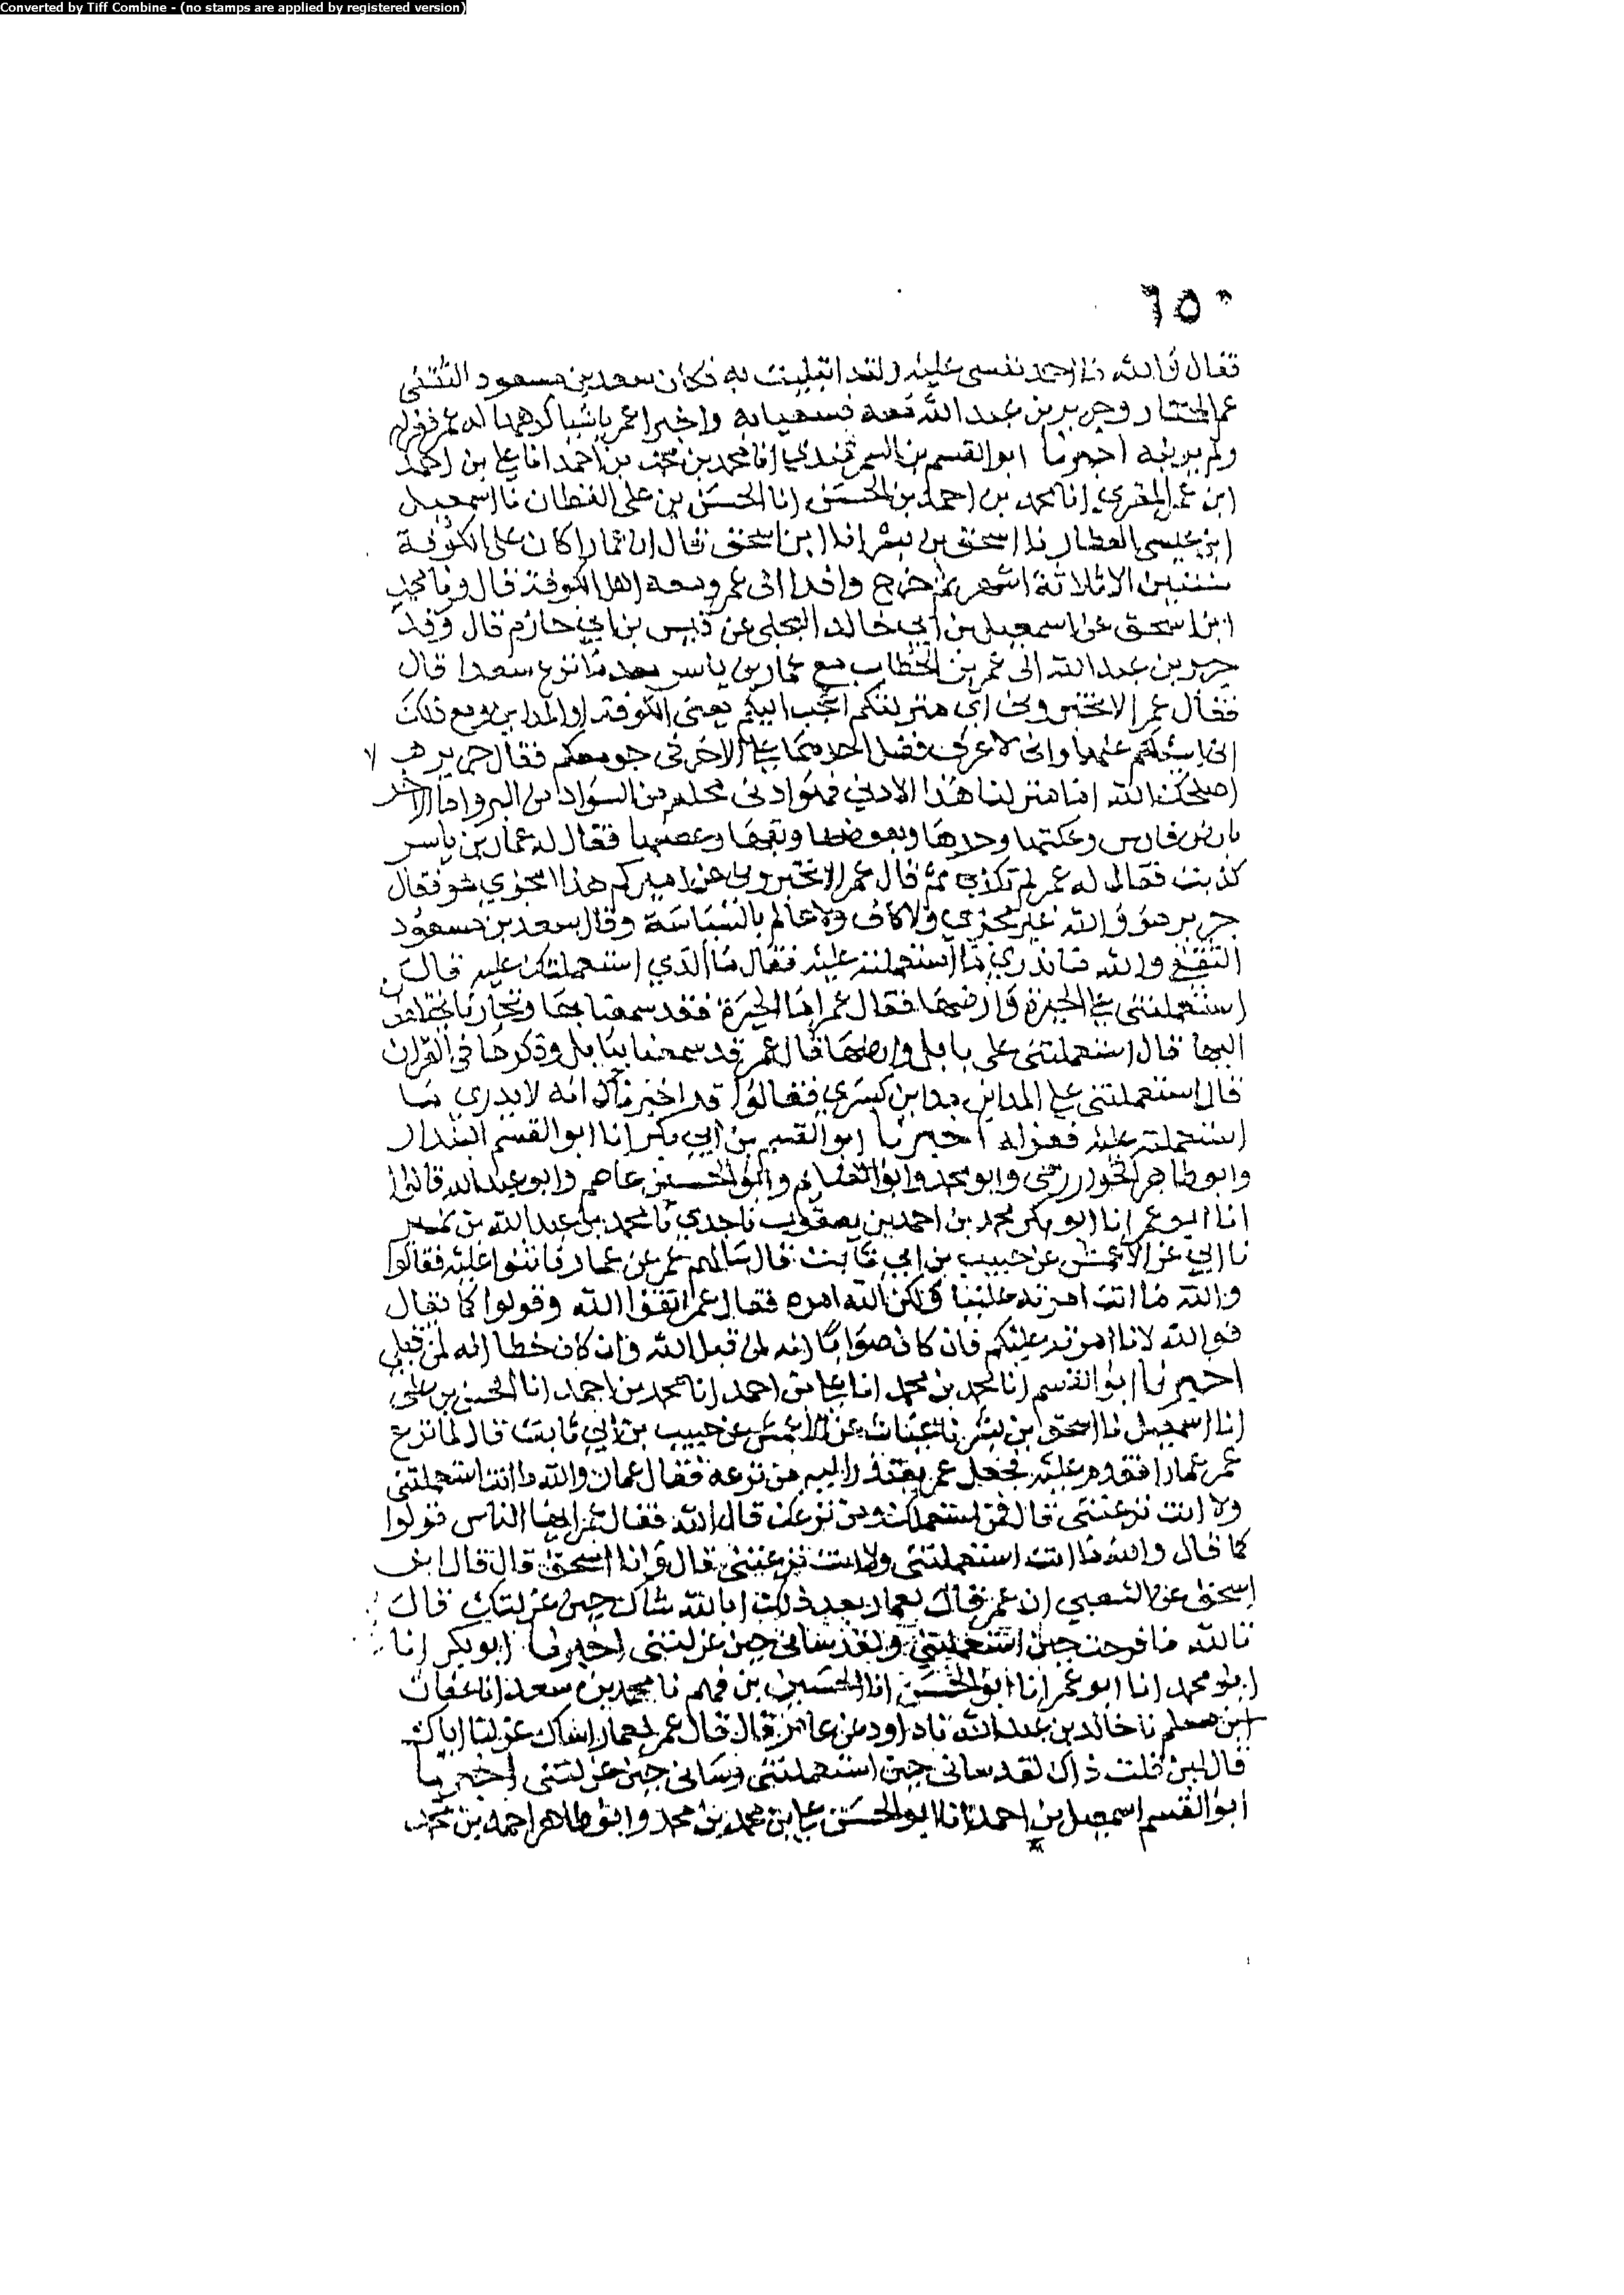 Converted by Tiff Combine - (no stamps are applied by registered version)
٦٥٠
فقال والله ما احمد نفسي عليه ولقد ابتليت به فكان سعد بن مسعود الثقفي
عم المختار وجرير بن عبد الله معه فسعيا به واخبرا عمر باشيا كرهها له عمر فعزله
ولم يوليه اخبرنا ابو القسم بن السمرقندي انا محمد بن محمد بن احمد انا علي بن احمد
ابن عمر المقري انا محمد بن احمد بن الحسن انا الحسن بن علي القطان نا اسمعيل
ابن عيسى العطار نا اسحق بن بشر انا ابن اسحق قال ان عمارا كان على الكوفة
سنتين الا ثلاثة اشهر ثم خرج وافدا الى عمر ومعه اهل الكوفة قال ونا محمد
ابن اسحق عن اسمعيل بن ابي خالد البجلي عن قيس بن ابي حازم قال وفد
جرير بن عبد الله الى عمر بن الخطاب مع عمار بن ياسر بعد ما نزع سعدا قال
فقال عمر الا تخبروني اي منزليكم اعجب اليكم يعني الكوفة او المداين مع ذلك
اني اسئلكم عنهما واني لاعرف فضل احدهما على الاخر في وجوهكم فقال جرير
اصلحك الله اما منزلنا هذا الادنى فهو ادنى محله من السواد من البر واما الاخر
بارض فارس وعكتها وحرها وبعوضها وبقها فقال له عمار بن ياسر
كذبت فقال له عمر لم تكذب ثم قال عمر الا تخبروني عن اميركم هذا امجزي هو فقال
جرير هو والله غير مجزي ولا كاف ولا عالم بالسياسة وقال سعد بن مسعود
الثقفي والله ما تدري ما استعملته عليه فقال ما الذي استعملتك عليه قال
استعملتني على الحيرة وارضها فقال عمر اما الحيرة فقد سمعنا بها وتجارنا تختلف
اليها قال استعملتني على بابل وارضها قال عمر قد سمعنا ببابل وذكرها في القران
قال استعملتني على المداين مداين كسرى فقالوا قد اخبرناك انه لا يدري ما
استعملته عليه فعزله اخبرنا ابو القسم بن ابي بكر انا ابو القسم البندار
وابو طاهر الخوارزمي وابو محمد وابو الغنايم وابو الحسين عاصم وابو عبد الله قالوا
انا ابو عمر انا ابو بكر محمد بن احمد بن يعقوب نا جدي نا محمد بن عبد الله بن نمير
نا ابي عن الاعمش عن حبيب بن ابي ثابت قال سالهم عمر عن عمار فاثنوا عليه فقالوا
والله ما انت امرته علينا ولكن الله امره فقال عمر اتقوا الله وقولوا كما يقال
فوالله لانا امرته عليكم فان كان صوابا انه لمن قبل الله وان كان خطا انه لمن قبلي
اخبرنا ابو القسم انا محمد بن محمد انا علي بن احمد انا محمد بن احمد انا الحسن بن علي
انا اسمعيل نا اسحق بن بشر نا عن الاعمش عن حبيب بن ابي ثابت قال لما نزع
عمر عمارا فقدم عليه فجعل عمر يعتذر اليه من نزعه فقال عمار والله ما انت استعملتني
ولا انت نزعتني قال فمن استعملك ومن نزعك قال الله فقال عمر ايها الناس قولوا
كما قال والله ما انت استعملتني ولا انت نزعتني قال وانا اسحق قال قال ابن
اسحق عن الشعبي ان عمر قال لعمار بعد ذلك ابالله ساك حين عزلتك قال
تالله ما فرحت حين استعملتني ولقد ساني حين عزلتني اخبرنا ابو بكر انا
ابو محمد انا ابو عمر انا ابو الحسن انا الحسين بن فهم نا محمد بن سعد انا عفان
ابن مسلم نا خالد بن عبد الله نا داود عن عامر قال قال عمر لعمار اساك عزلنا اياك
قال لين قلت ذاك لقد ساني حين استعملتني وساني حين عزلتني اخبرنا
ابو القسم اسمعيل بن احمد انا ابو الحسن علي بن محمد بن محمد وابو طاهر احمد بن محمد